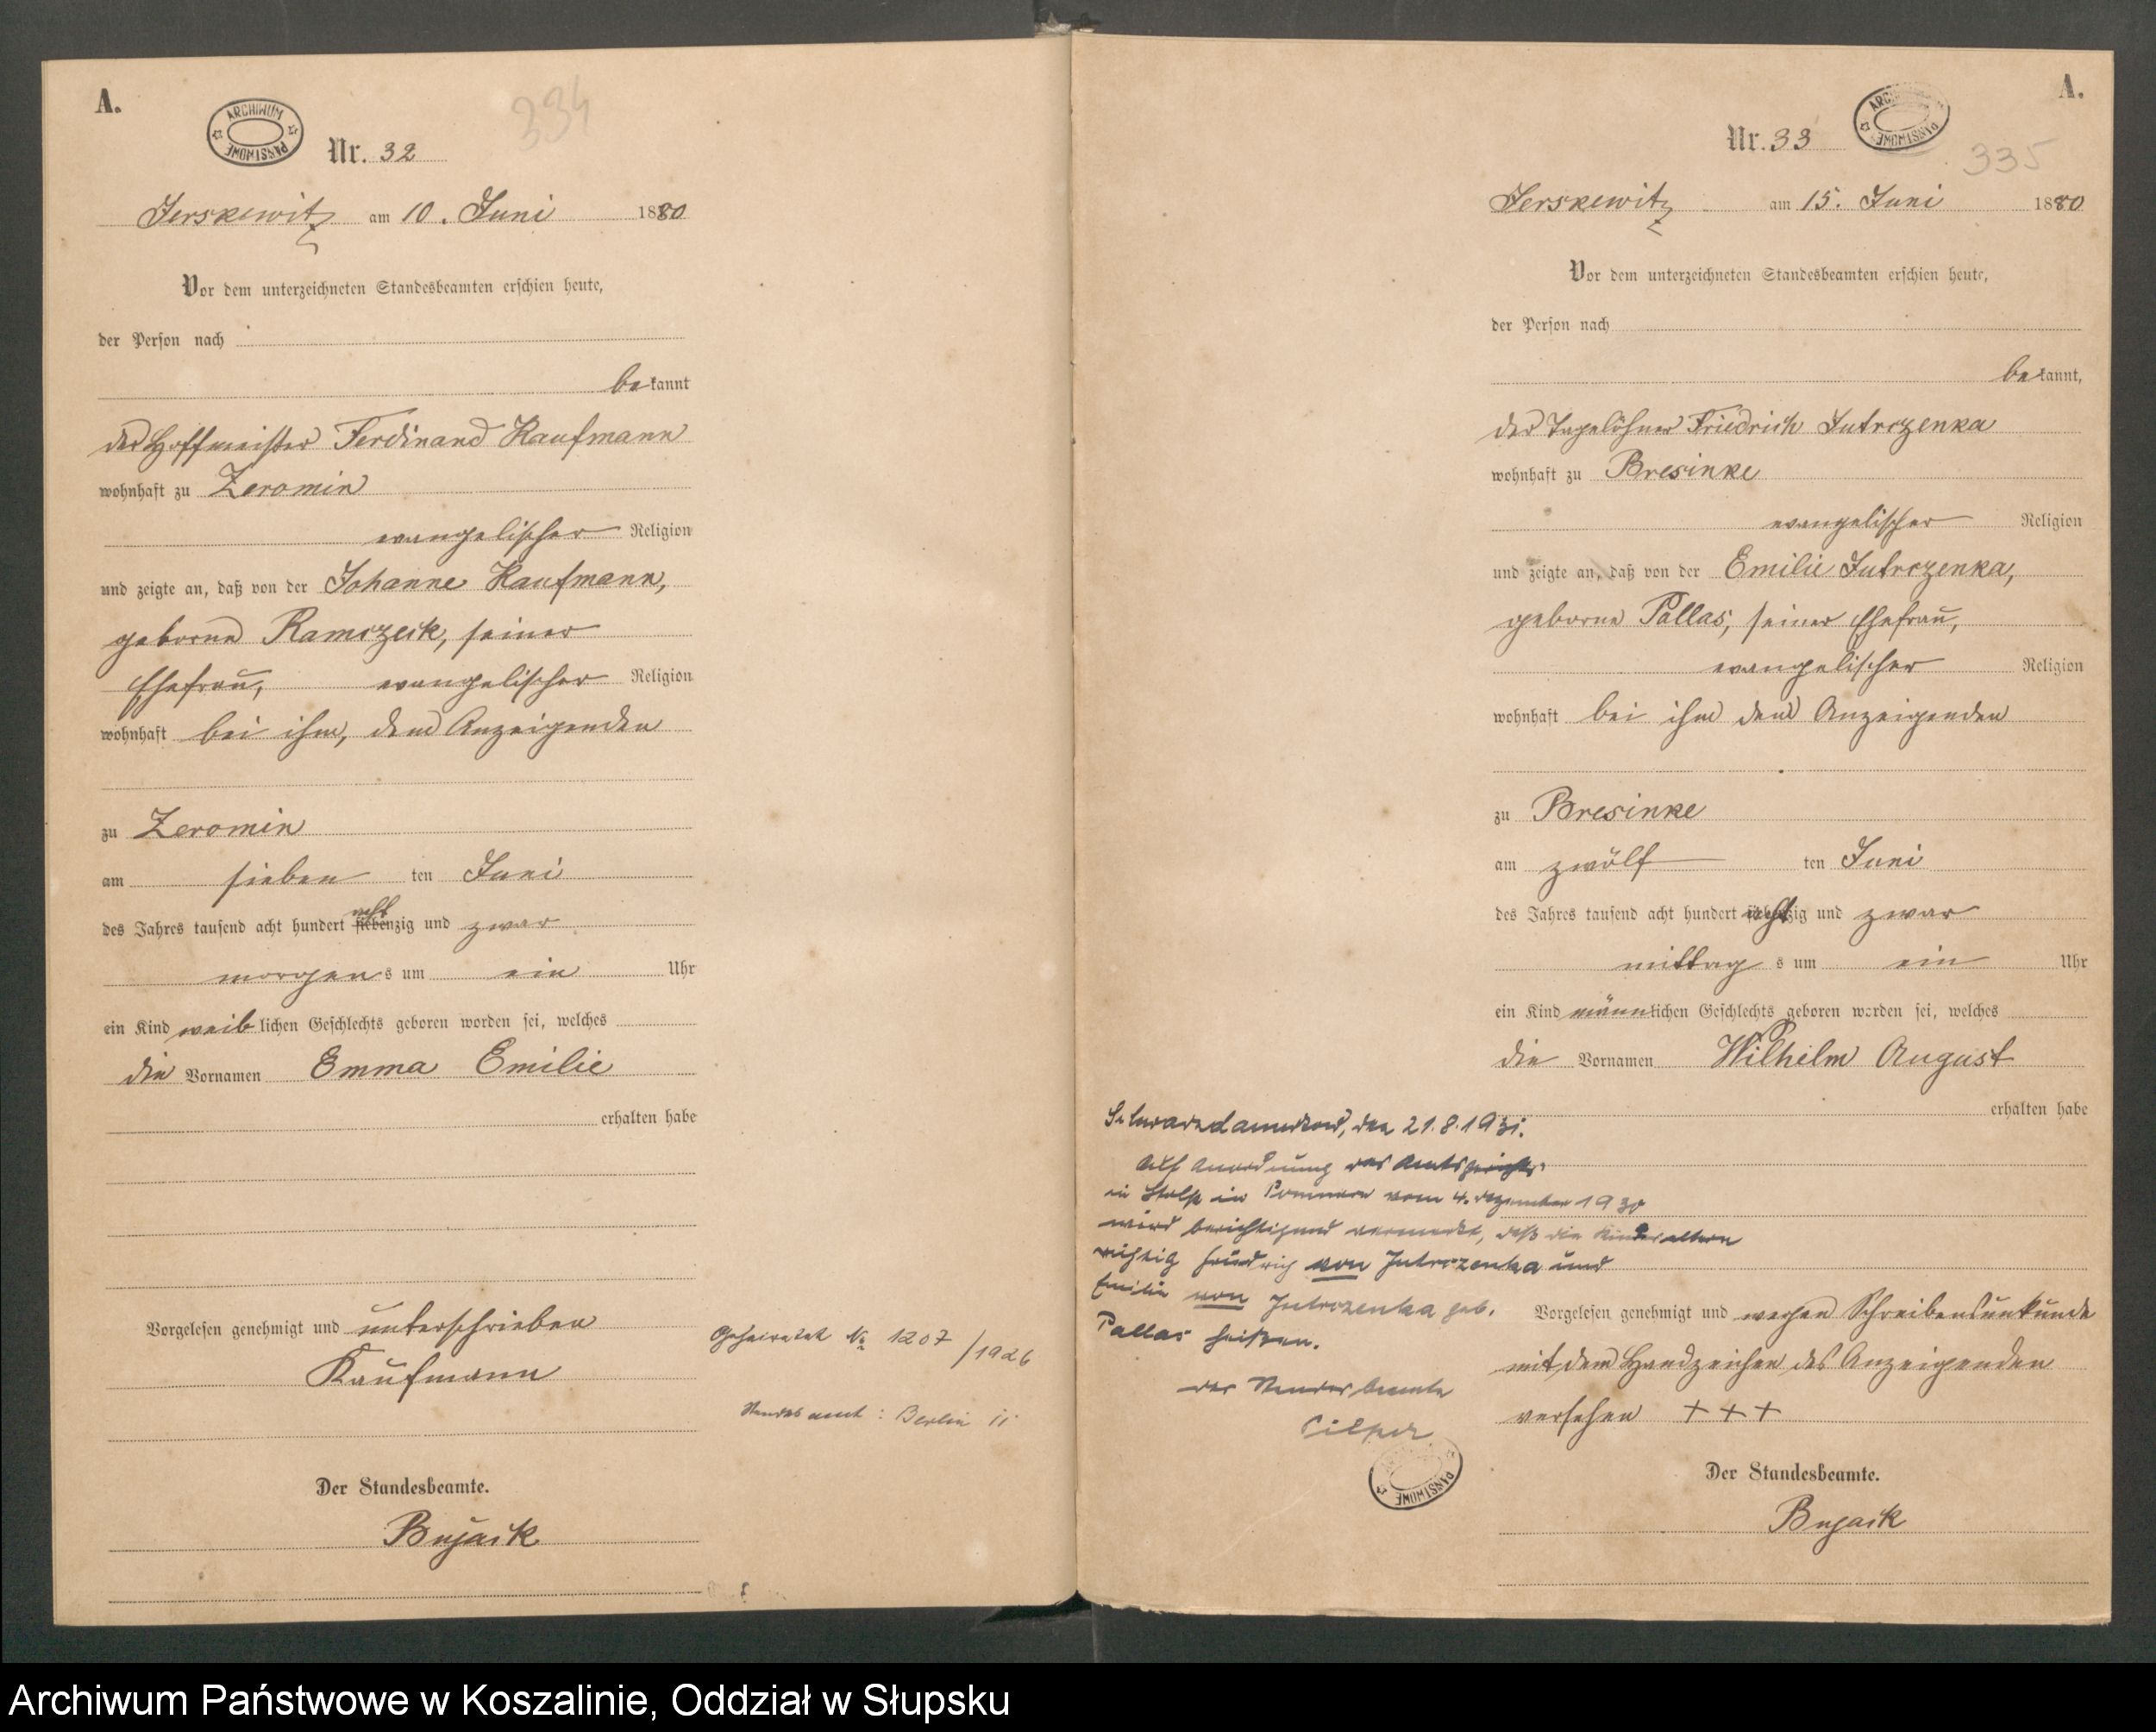 A.
ARCHIWUM PAŃSTWOWE
334
Nr. 32
Jerskewitz am 10. Juni 1880
Vor dem unterzeichneten Standesbeamten erschien heute,
der Person nach
bekannt
der Hoffmeister Ferdinand Kaufmann
wohnhaft zu Zeromin
evangelischer Religion
und zeigte an, daß von der Johanne Kaufmann,
geborne Ramczeck, seiner
Ehefrau, evangelischer Religion
wohnhaft bei ihm, dem Anzeigenden
zu Zeromin
am sieben ten Juni
acht
des Jahres tausend acht hundert siebenzig und zwar
morgens um ein Uhr
ein Kind weiblichen Geschlechts geboren worden sei, welches
die Vornamen Emma Emilie
erhalten habe
Vorgelesen genehmigt und unterschrieben
Kaufmann
Der Standesbeamte.
Bujack
Geheiratet No 1207/1926
Standesamt: Berlin II
A.
ARCHIWUM PAŃSTWOWE
Nr. 33
335
Jerskewitz am 15. Juni 1880
Vor dem unterzeichneten Standesbeamten erschien heute,
der Person nach
bekannt,
der Tagelöhner Friedrich Jutrczenka
wohnhaft zu Bresinke
evangelischer Religion
und zeigte an, daß von der Emilie Jutrczenka,
geborne Pallas, seiner Ehefrau,
evangelischer Religion
wohnhaft bei ihm dem Anzeigenden
zu Bresinke
am zwölf ten Juni
des Jahres tausend acht hundert achtzig und zwar
mittags um ein Uhr
ein Kind männlichen Geschlechts geboren worden sei, welches
die Vornamen Wilhelm August
erhalten habe
Schwarzdamerkow, den 21.8.1931.
Auf Anordnung des Amtsgerichts
in Stolp in Pommern vom 4. Dezember 1930
wird berichtigend vermerkt, daß die Kindeseltern
richtig Friedrich von Jutrczenka und
Emilie von Jutrczenka geb.
Pallas heißen.
Der Standesbeamte
PAŃSTWOWE
Vorgelesen genehmigt und wegen Schreibensunkunde
mit dem Handzeichen des Anzeigenden
versehen + + +
Der Standesbeamte.
Bujack
Archiwum Państwowe w Koszalinie, Oddział w Słupsku